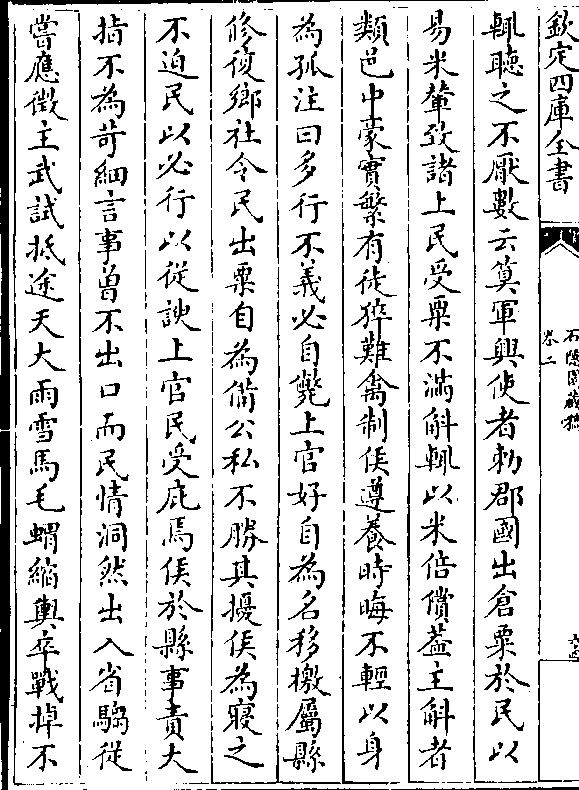 欽定四庫全書
石隱園藏稿
卷二
輒聽之不厭數云箕軍興使者勅郡國出倉粟於民以
易米輦致諸上民受粟不滿斛輒以米倍償葢主斛者
類邑中豪實繁有徒猝難禽制侯遵養時晦不輕以身
為孤注曰多行不義必自斃上官好自為名移檄屬縣
修復鄉社令民出粟自為備公私不勝其擾侯為寢之
不迫民以必行以從諛上官民受庇焉侯於縣事責大
指不為苛細言事曽不出口而民情洞然出入省騶從
嘗應徵主武試抵途天大雨雪馬毛蝟縮輿卒戰掉不